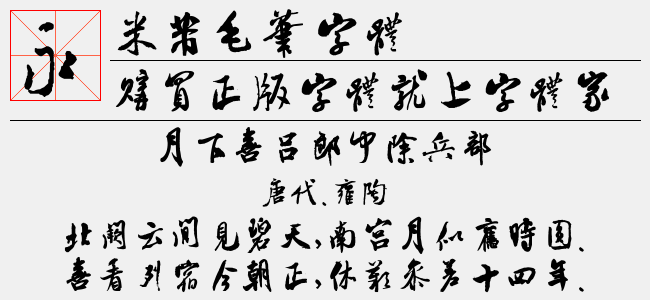 永
米芾毛筆字體
購買正版字體就上字體家
月下喜吕郎中除兵部
唐代、雍陶
北闕云間見碧天,南宫月似舊時圓.
喜看列宿今朝正,休歎叅差十四年.